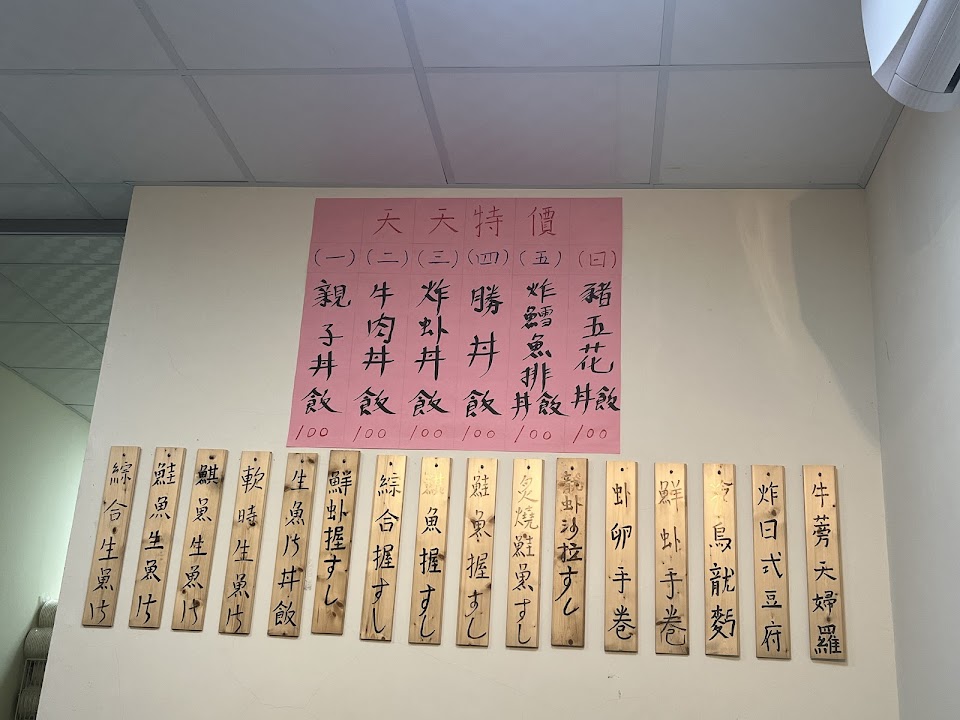 天天特價
(一) 親子丼飯 100
(二) 牛肉丼飯 100
(三) 炸虾丼飯 100
(四) 勝丼飯 100
(五) 炸鱈魚排丼飯 100
(日) 豬五花丼飯 100
綜合生魚片
鮭魚生魚片
旗魚生魚片
軟時生魚片
生魚片丼飯
鮮虾握すし
綜合握すし
魚握すし
鮭魚握すし
炙燒鮭魚すし
龍虾沙拉すし
虾卵手卷
鮮虾手卷
烏龍麵
炸日式豆府
牛蒡天婦羅